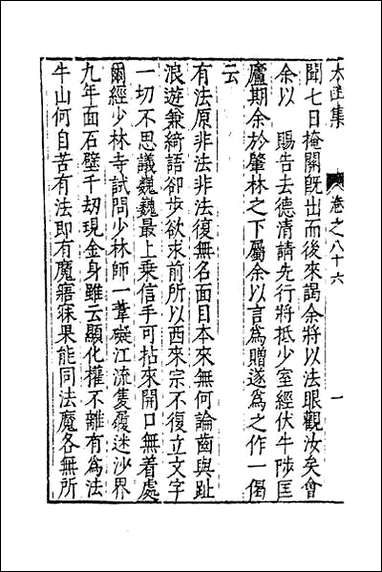 太函集
卷之八十六
一
聞七日掩關旣出而後來謁余將以法眼觀汝矣會
余以 賜告去德清請先行將抵少室經伏牛陟匡
廬期余於肇林之下屬余以言爲贈遂爲之作一偈
云
有法原非法非法復無名面目本來無何論齒與趾
浪遊兼綺語卻步欲求前所以西來宗不復立文字
一切不思議巍巍最上乘信手可拈來開口無着處
爾經少林寺試問少林師一葦礙江流隻履迷沙界
九年面石壁千劫現金身雖云顯化權不離有爲法
牛山何自苦有法即有魔寤寐果能同法魔各無所